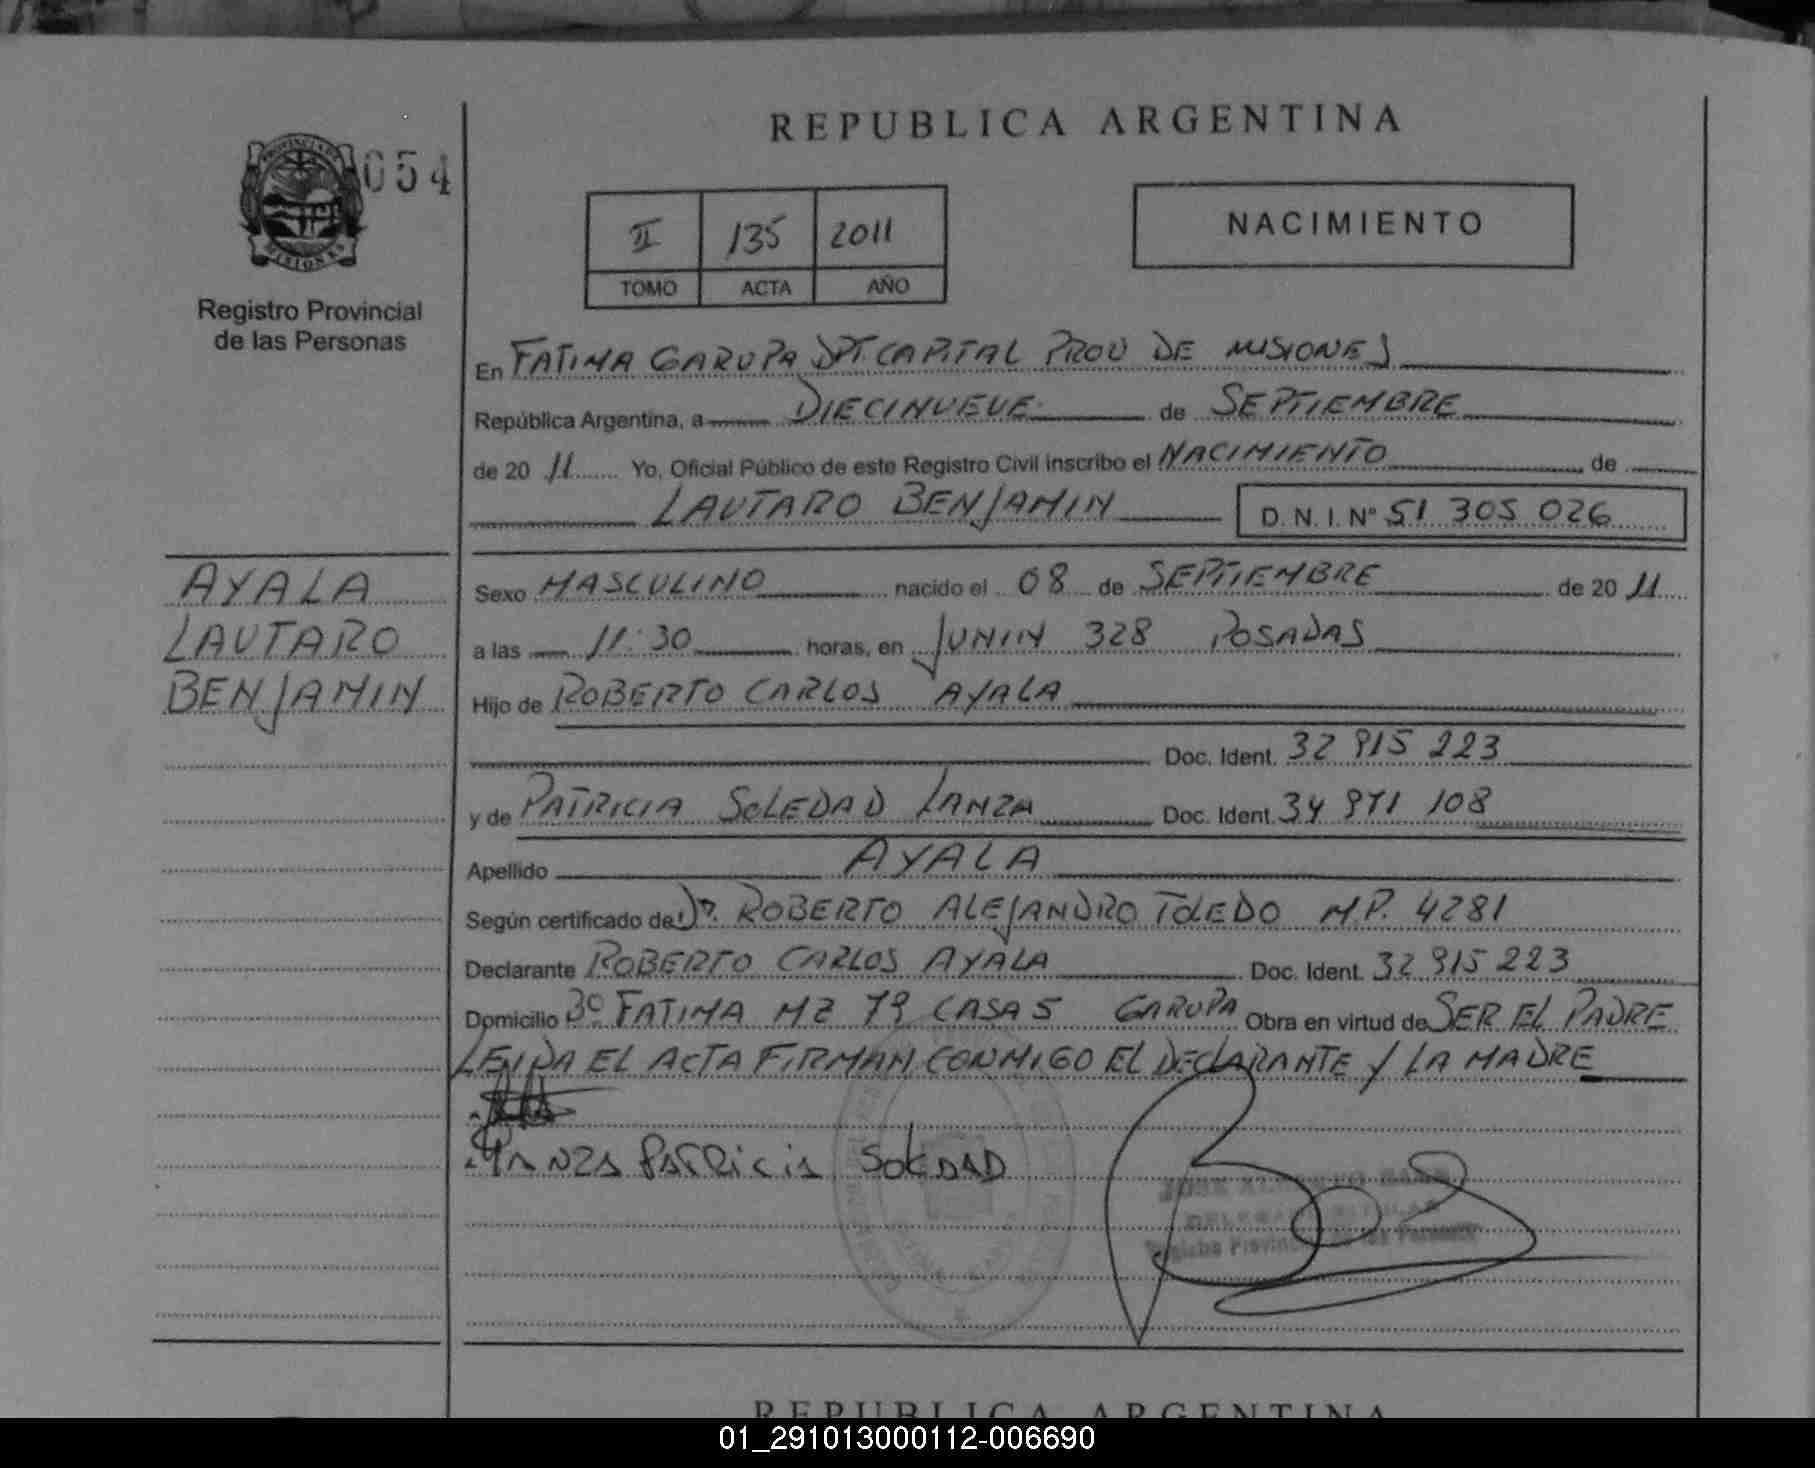 REPUBLICA ARGENTINA
PROVINCIA DE
MISIONES
054
Registro Provincial
de las Personas
II 135 2011
TOMO ACTA AÑO
NACIMIENTO
En FATIMA GARUPA DPT. CAPITAL PROV DE MISIONES
República Argentina, a DIECINUEVE de SEPTIEMBRE
de 20 11 Yo, Oficial Público de este Registro Civil inscribo el NACIMIENTO de
LAUTARO BENJAMIN D.N.I. Nº 51 305 026
AYALA
LAUTARO
BENJAMIN
Sexo MASCULINO nacido el 08 de SEPTIEMBRE de 20 11
a las 11:30 horas, en JUNIN 328 POSADAS
Hijo de ROBERTO CARLOS AYALA
Doc. Ident. 32 915 223
y de PATRICIA SOLEDAD LANZA Doc. Ident. 34 971 108
Apellido AYALA
Según certificado de Dr. ROBERTO ALEJANDRO TOLEDO M.P. 4281
Declarante ROBERTO CARLOS AYALA Doc. Ident. 32 915 223
Domicilio Bº FATIMA MZ 79 CASA 5 GARUPA Obra en virtud de SER EL PADRE
LEIDA EL ACTA FIRMAN CONMIGO EL DECLARANTE Y LA MADRE
PATRICIA SOLEDAD
JOSE ALBERTO
Registro Provincial de las Personas
REPUBLICA ARGENTINA
01_291013000112-006690